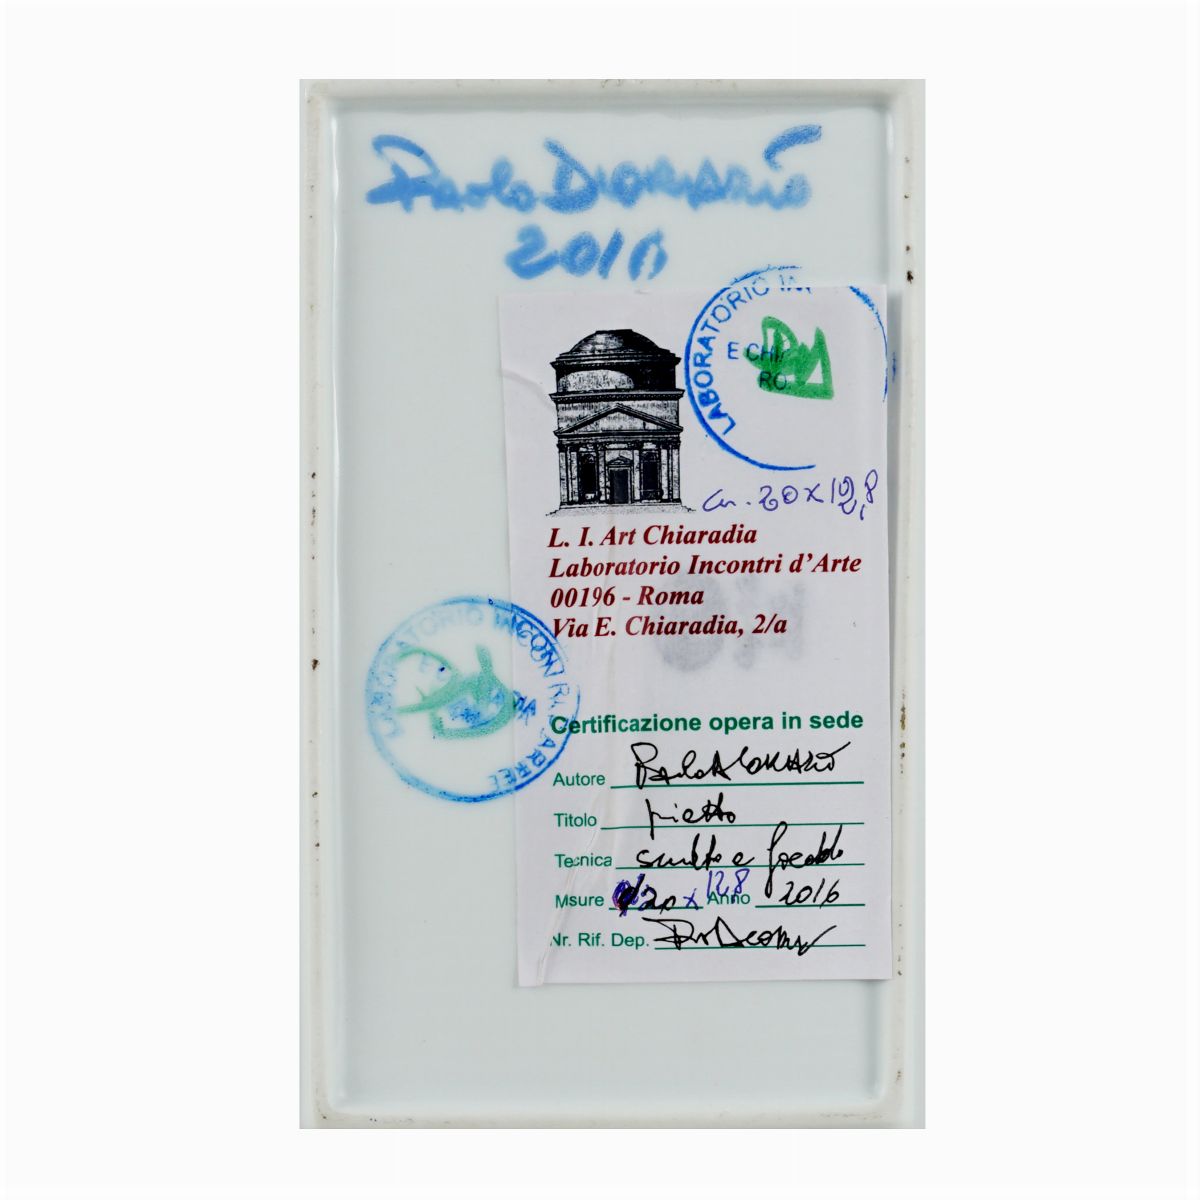 Paolo
2016
LABORATORIO IN
E CHI
RO
cm. 20 x 12,8
L. I. Art Chiaradia
Laboratorio Incontri d'Arte
00196 - Roma
Via E. Chiaradia, 2/a
LABORATORIO INCONTRI
Certificazione opera in sede
Autore Paolo
Titolo piatto
Tecnica smalto a freddo
Msure 20 x 12,8 Anno 2016
Nr. Rif. Dep.